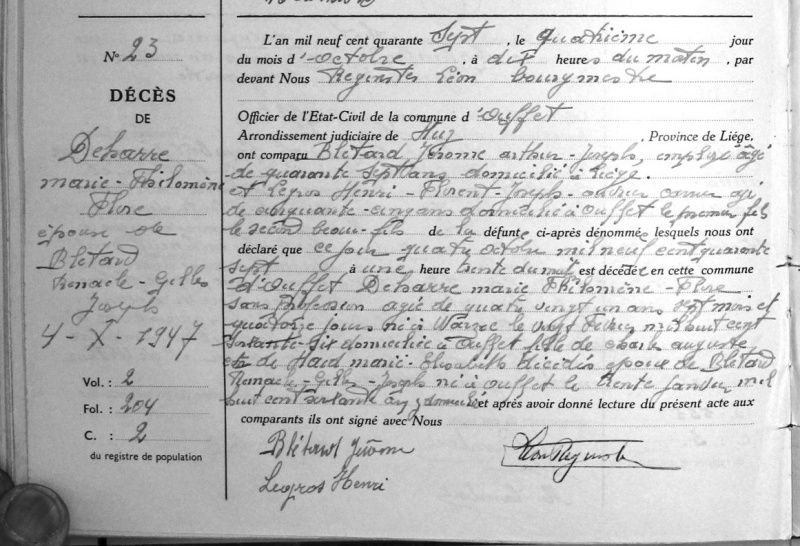 N° 23
DÉCÈS
DE
Deharre
marie-Philomène
Flore
épouse de
Blétard
Remacle-Gilles
Joseph
4-X-1947
Vol. : 2
Fol. : 204
C. : 2
du registre de population
L'an mil neuf cent quarante sept, le quatrième jour
du mois d'octobre, à dix heures du matin, par
devant Nous Reginster Léon bourgmestre
Officier de l'Etat-Civil de la commune d'Ouffet
Arrondissement judiciaire de Huy, Province de Liége.
ont comparu Blétard Jérome arthur-Joseph, employé âgé
de quarante sept ans domicilié à Liége.
et Legros Henri-Florent-Joseph agé
de cinquante-cinq ans domicilié à Ouffet le premier fils
le second beau-fils de la défunte ci-après dénommée lesquels nous ont
déclaré que ce jour quatre octobre mil neuf cent quarante
sept à une heure trente du est décédée en cette commune
d'Ouffet Deharre marie Philomène-Flore
sans profession agée de quatre vingt un ans sept mois et
quatorze jours née à Warzée le vingt février mil huit cent
soixante-six domiciliée à Ouffet fille de auguste
et de marie-Elisabeth décédés épouse de Blétard
Remacle-Gilles-Joseph né à Ouffet le trente janvier mil
huit cent soixante domicilié et après avoir donné lecture du présent acte aux
comparants ils ont signé avec Nous
Blétard Jérome
Legros Henri
Léon Reginster